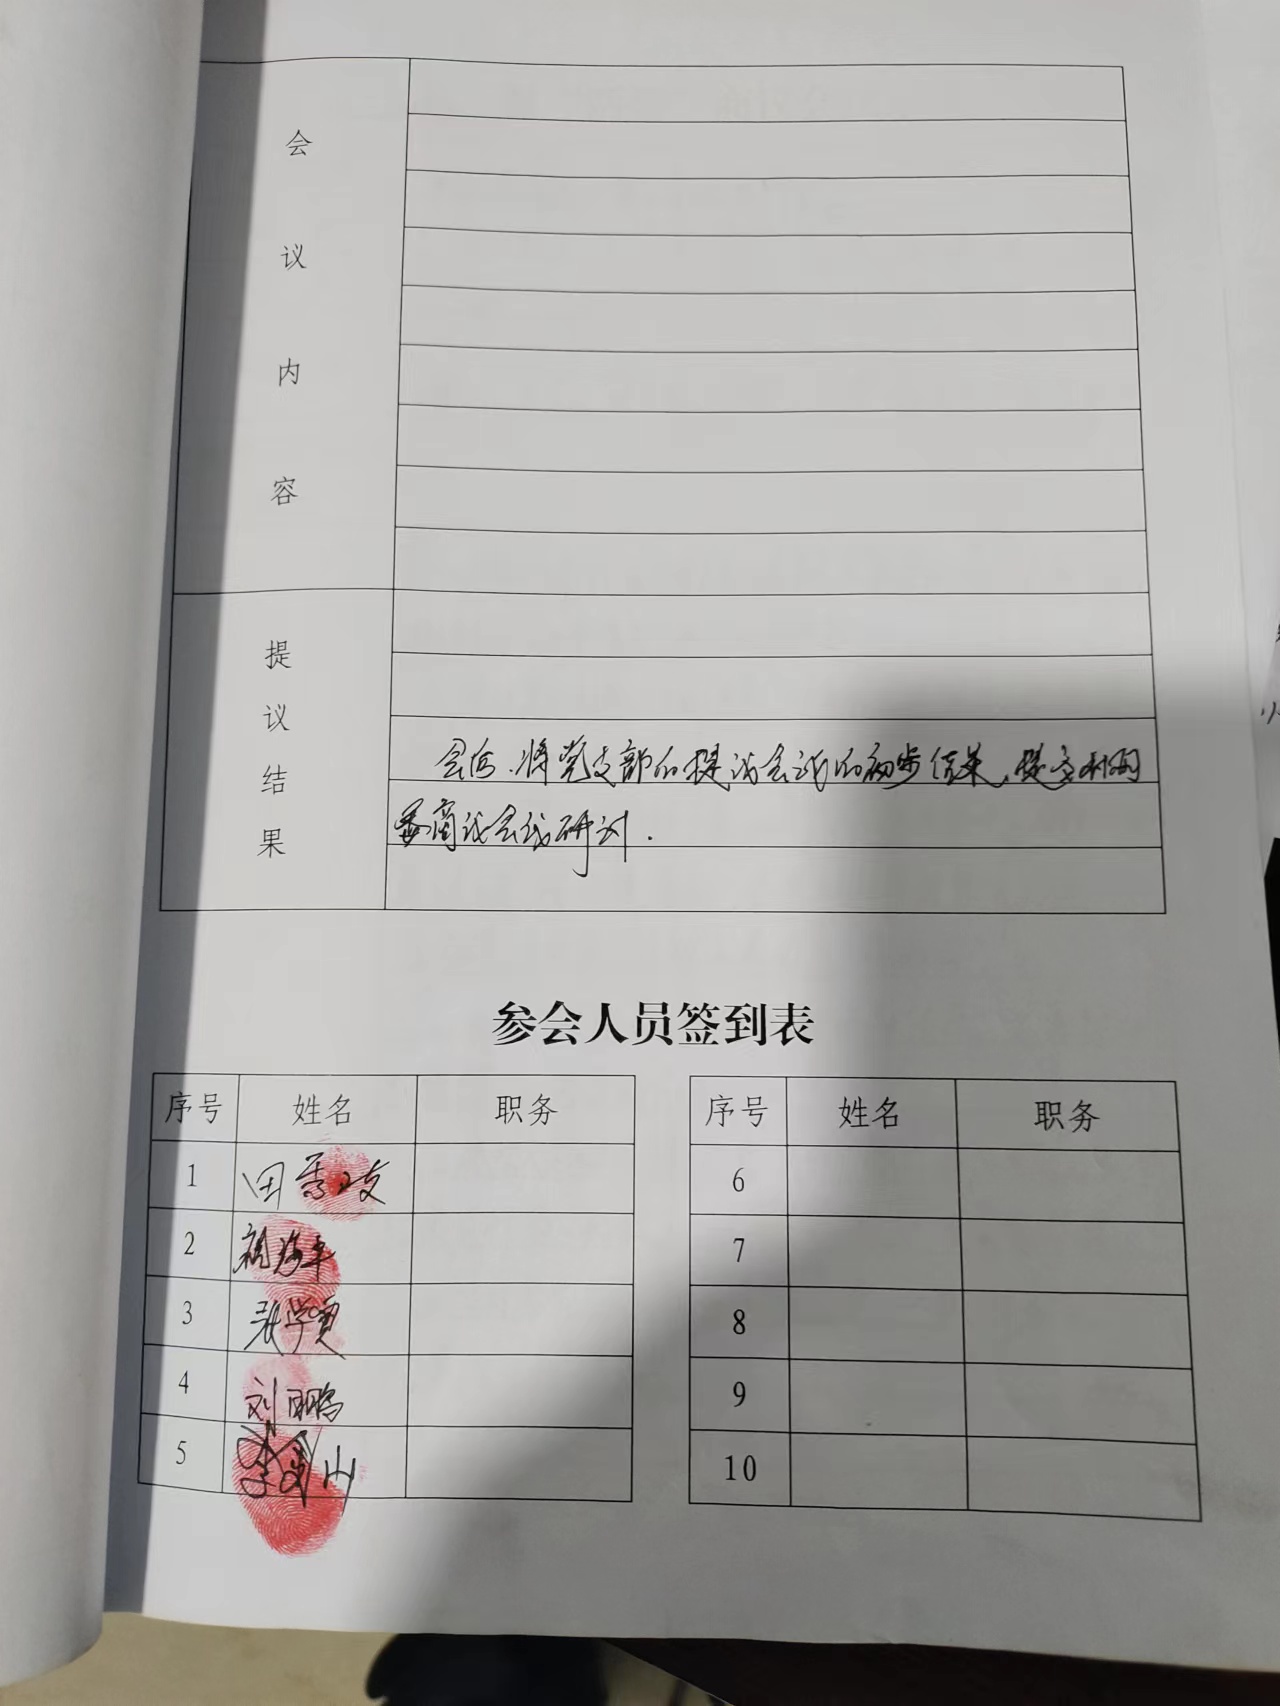 会
议
内
容
提
议
结
果
会后、将党支部的提议会议的初步结果、提交村两
委商议会议研讨.
参会人员签到表
序号 姓名 职务
1 田秀文
2
3 张学勇
4 刘鹏
5 李金山
序号 姓名 职务
6
7
8
9
10